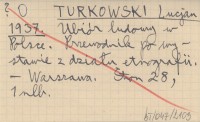 ? O TURKOWSKI Lucjan
1937. Ubiór ludowy w
Polsce. Przewodnik po wy-
stawie z działu etnografii.
– Warszawa. Stron 28,
1 nlb.